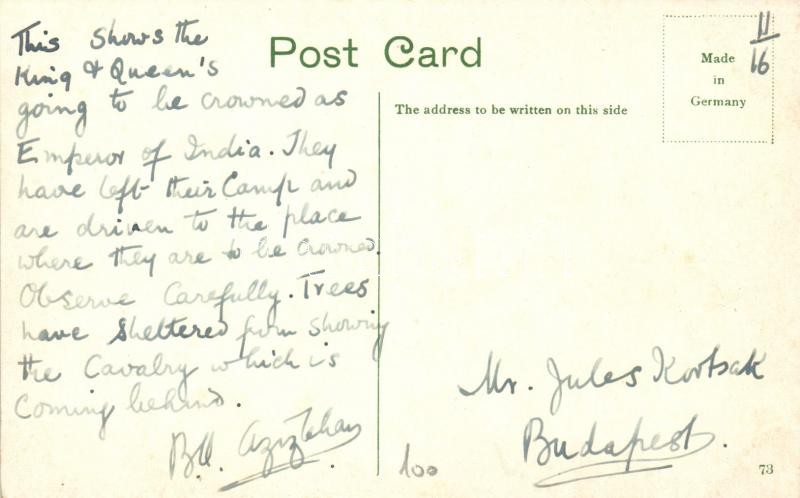 This Shows the
King & Queen's
going to be crowned as
Emperor of India. They
have left their Camp and
are driven to the place
where they are to be crowned.
Observe Carefully. Trees
have sheltered from showing
the Cavalry which is
Coming behind.
Post Card
The address to be written on this side
Made
in
Germany
11
16
Mr. Jules
Budapest.
100
73